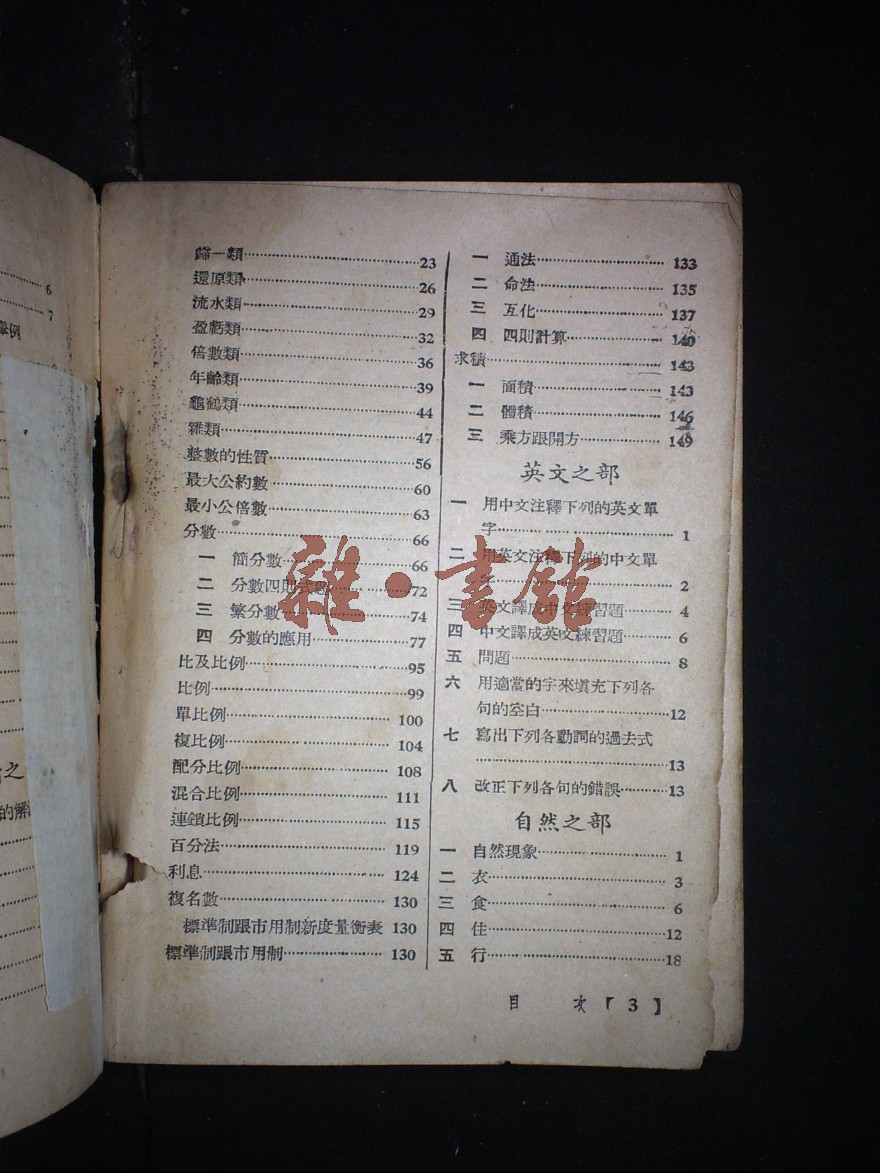 6
7
舉例
歸一類 23
還原類 26
流水類 29
盈虧類 32
倍數類 36
年齡類 39
龜鶴類 44
雜類 47
整數的性質 56
最大公約數 60
最小公倍數 63
分數 66
一 簡分數 66
二 分數四則 72
三 繁分數 74
四 分數的應用 77
比及比例 95
比例 99
單比例 100
複比例 104
配分比例 108
混合比例 111
連鎖比例 115
百分法 119
利息 124
複名數 130
標準制跟市用制新度量衡表 130
標準制跟市用制 130
一 通法 133
二 命法 135
三 互化 137
四 四則計算 140
求積 143
一 面積 143
二 體積 146
三 乘方跟開方 149
英文之部
一 用中文注釋下列的英文單
字 1
二 用英文注釋下列的中文單
字 2
三 英文譯成中文練習題 4
四 中文譯成英文練習題 6
五 問題 8
六 用適當的字來填充下列各
句的空白 12
七 寫出下列各動詞的過去式
13
八 改正下列各句的錯誤 13
自然之部
一 自然現象 1
二 衣 3
三 食 6
四 住 12
五 行 18
目 次【3】
雜·書館